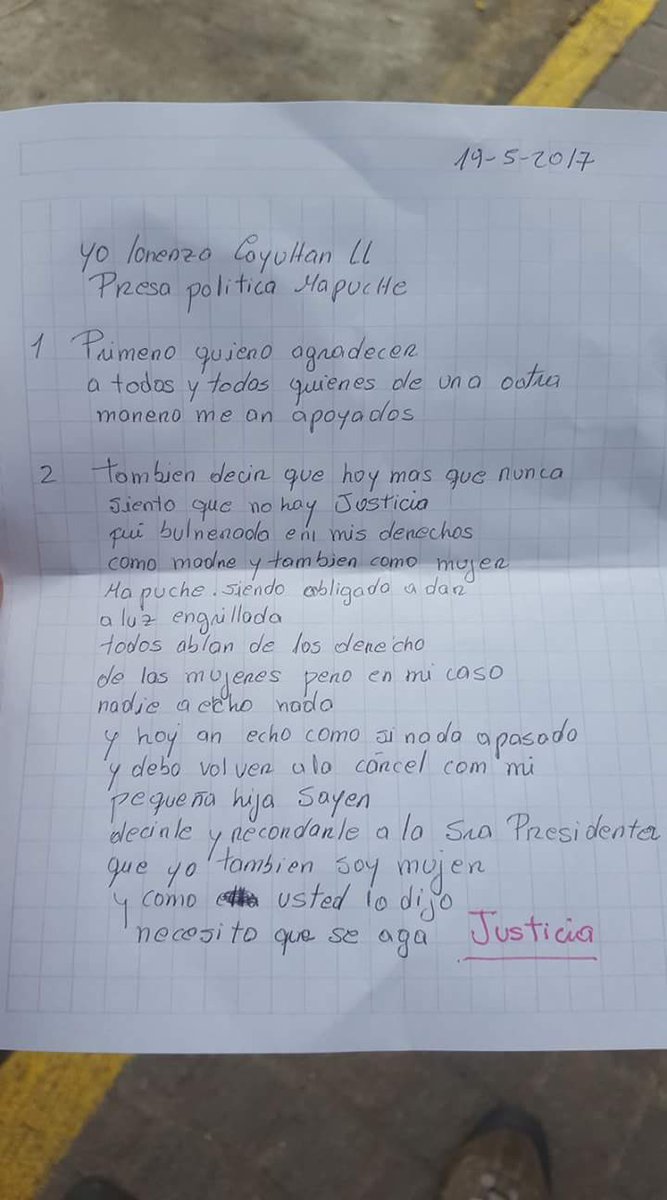 19-5-2017
yo lorenza Cayuhan ll
Presa politica Mapuche
1 Primero quiero agradecer
a todos y todas quienes de una ootra
manera me an apoyados
2 tambien decir que hoy mas que nunca
siento que no hay Justicia
fui bulnerada en mis derechos
como madre y tambien como mujer
Mapuche. siendo obligada a dar
a luz engrillada
todos ablan de los derecho
de las mujeres pero en mi caso
nadie a echo nada
y hoy an echo como si nada apasado
y debo volver ala cárcel com mi
pequeña hija Sayen
decirle y recordarle a la Sra Presidenta
que yo tambien soy mujer
y como usted lo dijo
necesito que se aga Justicia